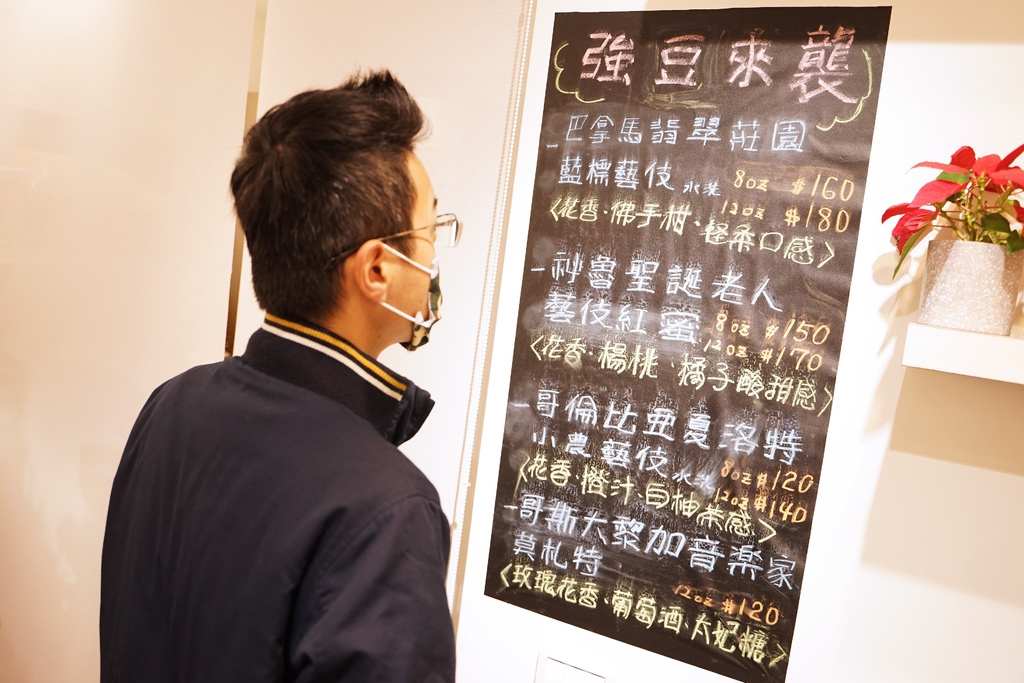 強豆來襲
巴拿馬翡翠莊園
藍標藝伎 水洗 8oz $160
12oz $180
<花香.佛手柑.輕柔口感>
祕魯聖誕老人
藝伎紅蜜 8oz $150
12oz $170
<花香.楊桃.橘子酸甜感>
哥倫比亞夏洛特
小農藝伎 水洗 8oz $120
12oz $140
<花香.橙汁.白柚茶感>
哥斯大黎加音樂家
莫札特
12oz $120
<玫瑰花香.葡萄酒.太妃糖>